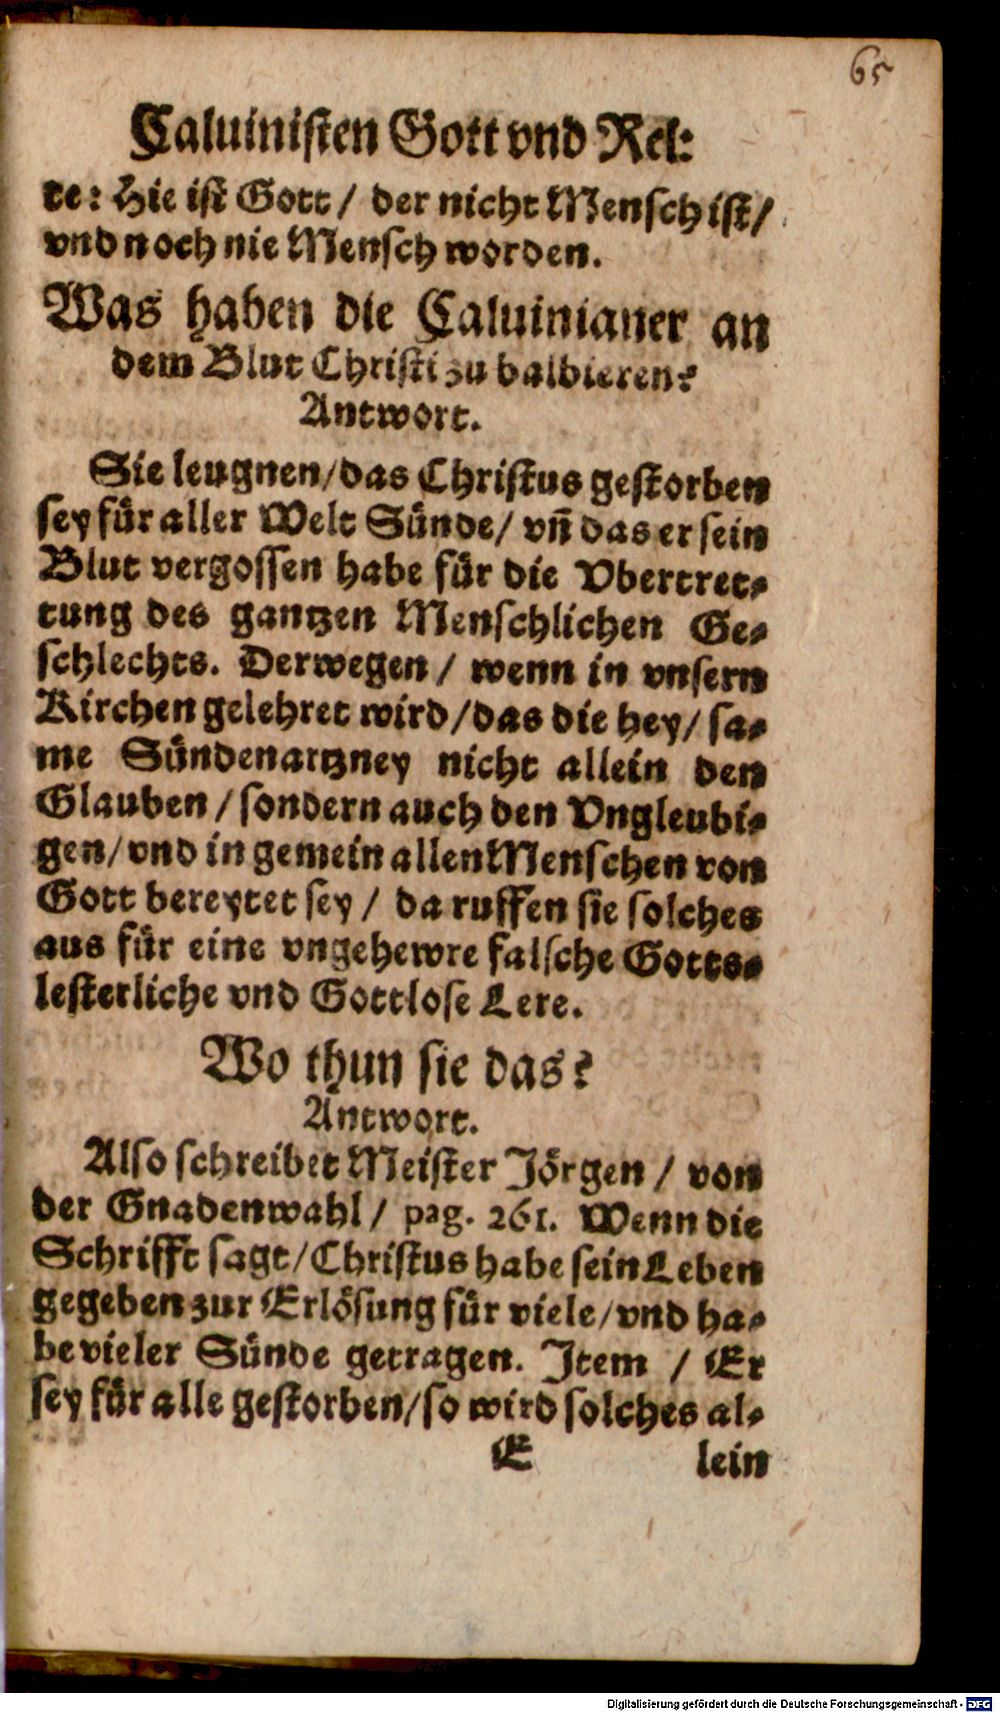 65
Caluiniſten Gott vnd Rel:
te: Hie iſt Gott / der nicht Menſch iſt /
vnd noch nie Menſch worden.
Was haben die Caluinianer an
dem Blut Chriſti zu balbieren?
Antwort.
Sie leugnen / das Chriſtus geſtorben
ſey für aller Welt Sünde / vn̄ das er ſein
Blut vergoſſen habe für die Vbertret-
tung des gantzen Menſchlichen Ge-
ſchlechts. Derwegen / wenn in vnſern
Kirchen gelehret wird / das die hey / ſa-
me Sündenartzney nicht allein den
Glauben / ſondern auch den Vngleubi-
gen / vnd in gemein allen Menſchen von
Gott bereytet ſey / da ruffen ſie ſolches
aus für eine vngehewre falſche Gotts-
leſterliche vnd Gottloſe Lere.
Wo thun ſie das?
Antwort.
Alſo ſchreibet Meiſter Jörgen / von
der Gnadenwahl / pag. 261. Wenn die
Schrifft ſagt / Chriſtus habe ſein Leben
gegeben zur Erlöſung für viele / vnd ha-
be vieler Sünde getragen. Item / Er
ſey für alle geſtorben / ſo wird ſolches al-
E lein
Digitalisierung gefördert durch die Deutsche Forschungsgemeinschaft - DFG